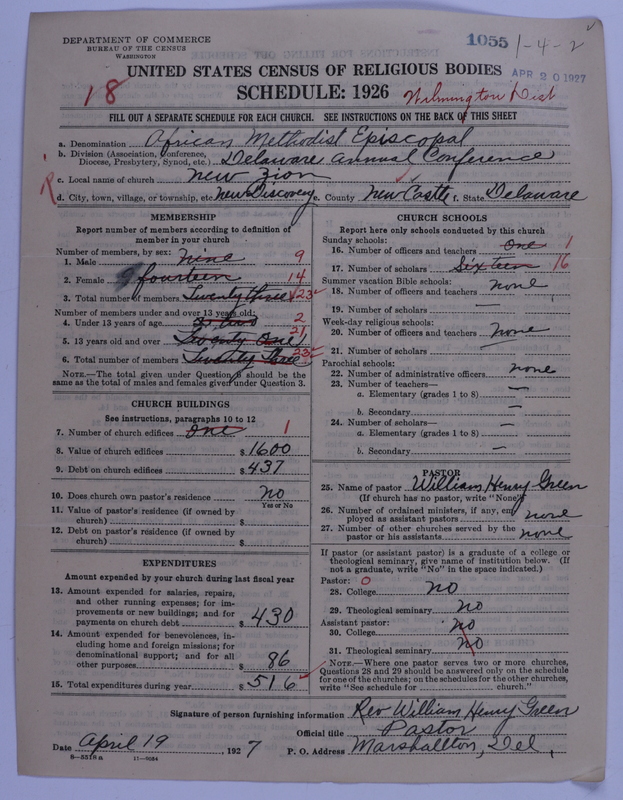 DEPARTMENT OF COMMERCE
BUREAU OF THE CENSUS
WASHINGTON
1055 1-4-2
APR 20 1927
UNITED STATES CENSUS OF RELIGIOUS BODIES
18 SCHEDULE: 1926 Wilmington Dist
FILL OUT A SEPARATE SCHEDULE FOR EACH CHURCH. SEE INSTRUCTIONS ON THE BACK OF THIS SHEET
a. Denomination African Methodist Episcopal
b. Division (Association, Conference, Diocese, Presbytery, Synod, etc.) Delaware Annual Conference
c. Local name of church New Zion
R
d. City, town, village, or township, etc. New Discovery e. County New Castle f. State Delaware
MEMBERSHIP
Report number of members according to definition of member in your church
Number of members, by sex:
1. Male nine 9
2. Female fourteen 14
3. Total number of members Twenty three 23
Number of members under and over 13 years old:
4. Under 13 years of age two 2
5. 13 years old and over Twenty one 21
6. Total number of members Twenty Three 23
NOTE.—The total given under Question 6 should be the same as the total of males and females given under Question 3.
CHURCH BUILDINGS
See instructions, paragraphs 10 to 12
7. Number of church edifices one 1
8. Value of church edifices $ 1600
9. Debt on church edifices $ 437
10. Does church own pastor's residence no
Yes or No
11. Value of pastor's residence (if owned by church) $
12. Debt on pastor's residence (if owned by church) $
EXPENDITURES
Amount expended by your church during last fiscal year
13. Amount expended for salaries, repairs, and other running expenses; for improvements or new buildings; and for payments on church debt $ 430
14. Amount expended for benevolences, including home and foreign missions; for denominational support; and for all other purposes $ 86
15. Total expenditures during year $ 516
CHURCH SCHOOLS
Report here only schools conducted by this church
Sunday schools:
16. Number of officers and teachers one 1
17. Number of scholars Sixteen 16
Summer vacation Bible schools:
18. Number of officers and teachers none
19. Number of scholars —
Week-day religious schools:
20. Number of officers and teachers none
21. Number of scholars —
Parochial schools:
22. Number of administrative officers none
23. Number of teachers—
a. Elementary (grades 1 to 8) —
b. Secondary —
24. Number of scholars—
a. Elementary (grades 1 to 8) —
b. Secondary —
PASTOR
25. Name of pastor William Henry Green
(If church has no pastor, write "None")
26. Number of ordained ministers, if any, employed as assistant pastors none
27. Number of other churches served by the pastor or his assistants none
If pastor (or assistant pastor) is a graduate of a college or theological seminary, give name of institution below. (If not a graduate, write "No" in the space indicated.)
Pastor: 0
28. College no
29. Theological seminary no
Assistant pastor:
30. College no
31. Theological seminary no
NOTE.—Where one pastor serves two or more churches, Questions 28 and 29 should be answered only on the schedule for one of the churches; on the schedules for the other churches, write "See schedule for church."
Signature of person furnishing information Rev William Henry Green
Official title Pastor
Date April 19, 1927 P. O. Address Marshallton, Del,
8—5518a 11—9084